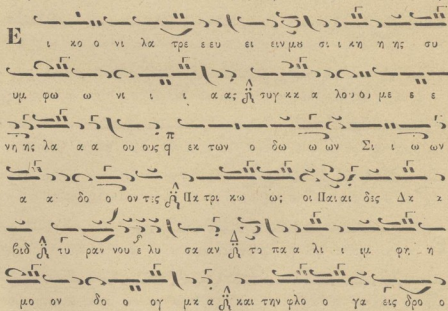 Ε ι κο ο νι λα τρε ε ευ ει ειν μου σι ι κη η ης συ
υμ φω ω νι ι ι α ας τυγ κα α λου ου με ε ε
νη ης λα α α ου ους q εκ των ο δω ω ων Σι ι ω ων
α α δο ο ον τες Πα τρι κω ως οι Παι αι δες Δα α
βιδ τυ ραν νου ε λυ σα αν το πα α λι ι ιμ φη η
μο ον δο ο ογ μα α και την φλο ο γα εις δρο ο